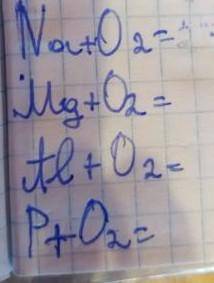 Na+O₂=
Mg+O₂=
Al+O₂=
P+O₂=